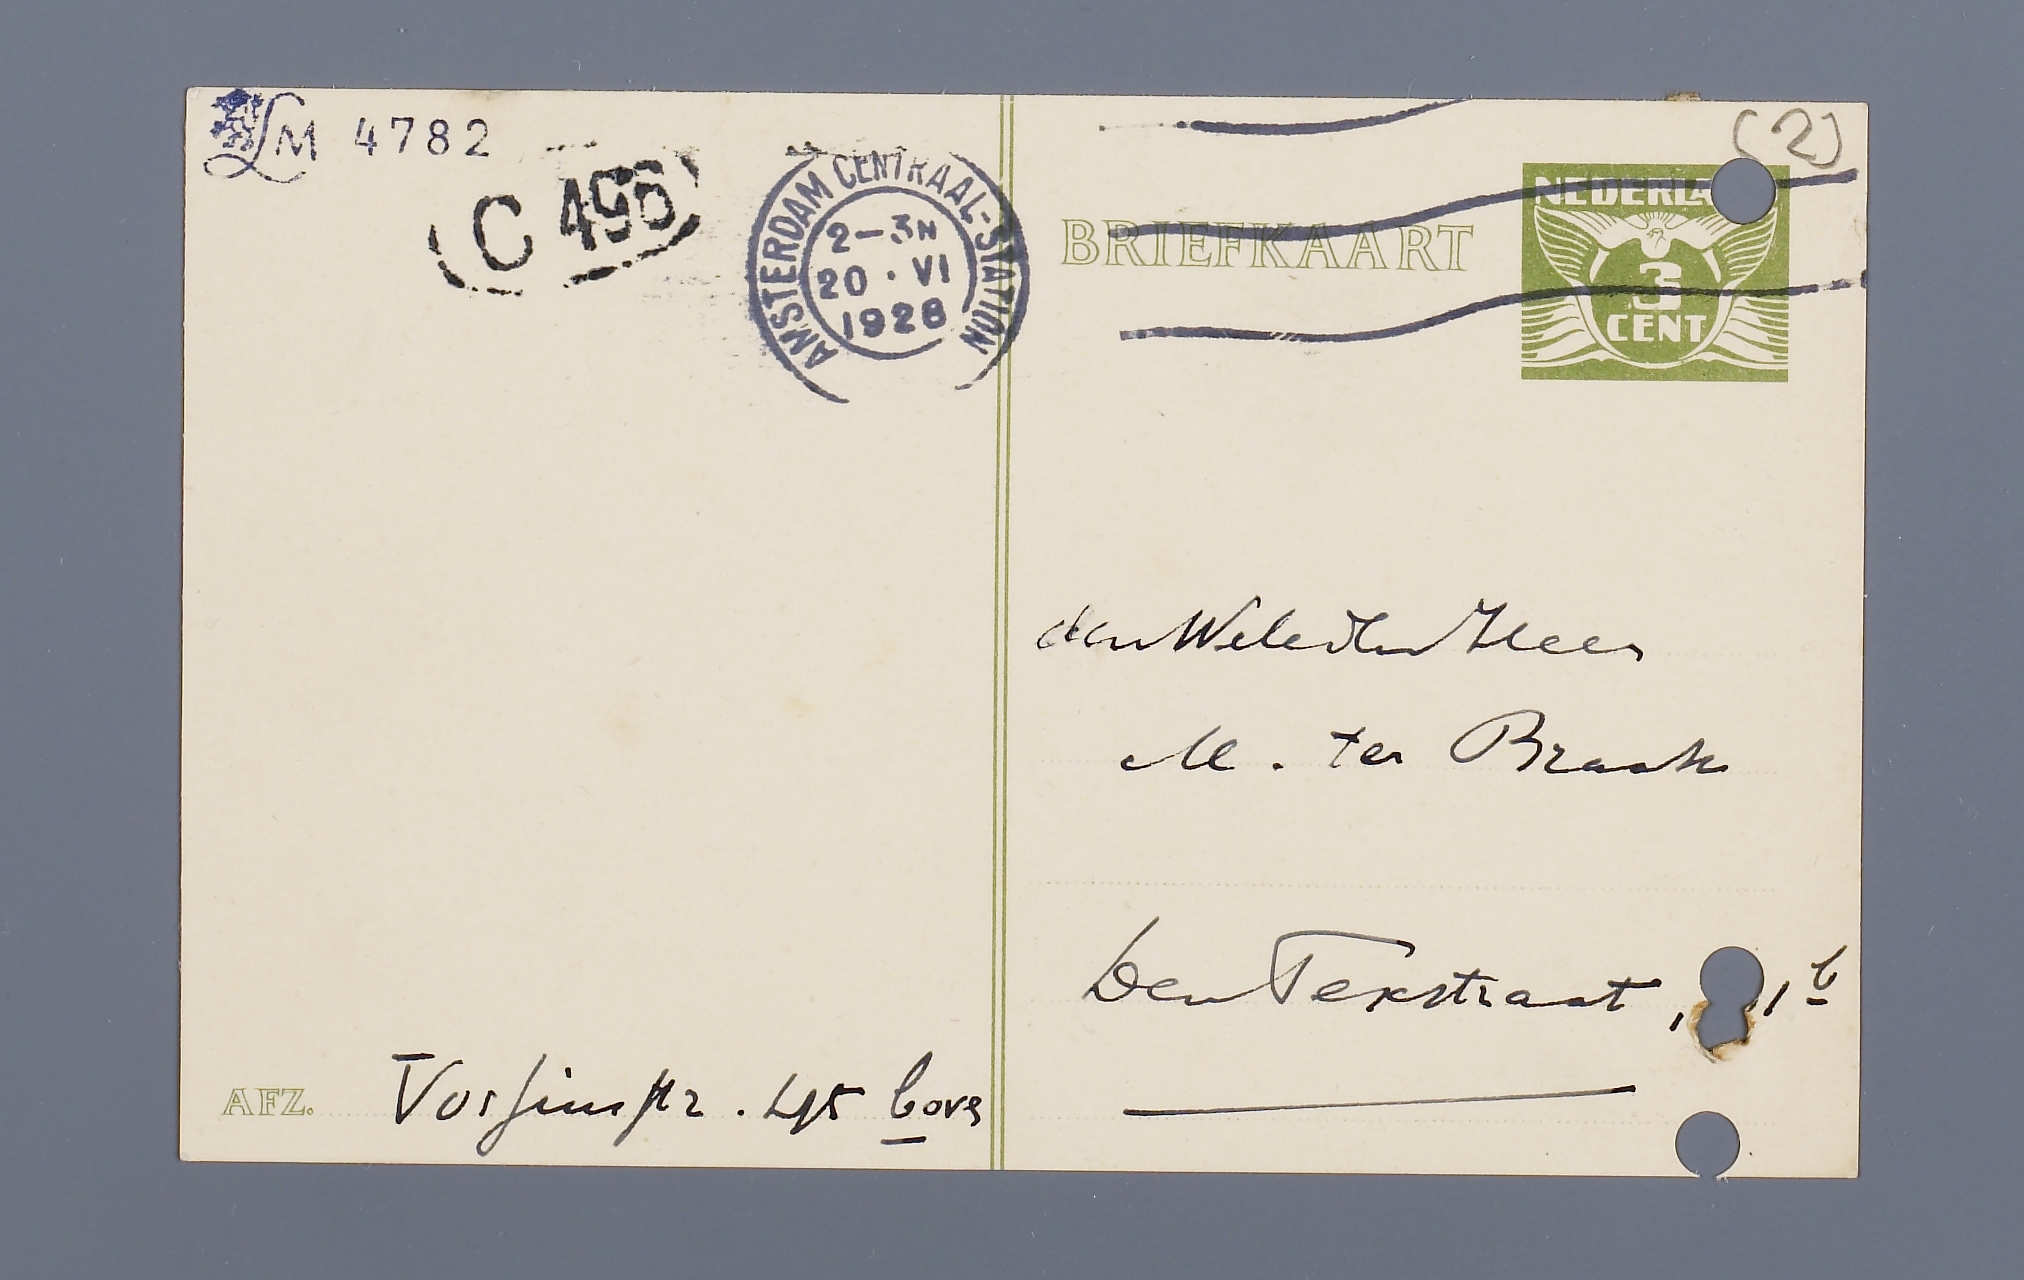 LM 4782
C 496
AMSTERDAM CENTRAAL-STATION
2-3N
20 · VI
1928
(2)
NEDERLA
3
CENT
BRIEFKAART
den WelEdlen Heer
M. ter Braak
Den Texstraat, 1 b
AFZ. Vossiusstr. 45 bove